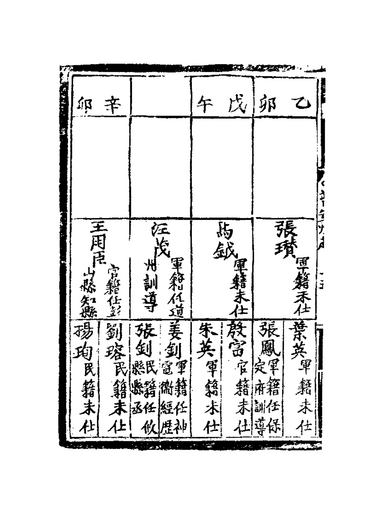 乙卯
張瓚 軍籍未仕
葉英 軍籍未仕
張鳳 軍籍任保定府訓導
戊午
馬鉞 軍籍未仕
殷富 官籍未仕
朱英 軍籍未仕
汪茂 軍籍任道州訓導
姜釗 軍籍任神電衛經歷
張釗 民籍任攸縣縣丞
辛卯
王用臣 官籍任彭山縣知縣
劉瑢 民籍未仕
楊珣 民籍未仕